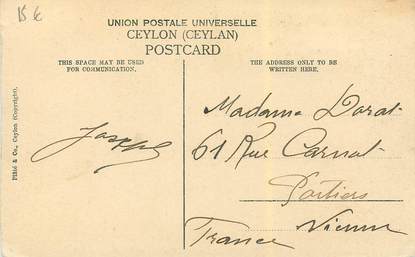 15 €
UNION POSTALE UNIVERSELLE
CEYLON (CEYLAN)
POSTCARD
THIS SPACE MAY BE USED
FOR COMMUNICATION.
THE ADDRESS ONLY TO BE
WRITTEN HERE.
Plâté & Co., Ceylon (Copyright).
Joseph
Madame Dorat
61 Rue Carnot
Poitiers
Vienne
France